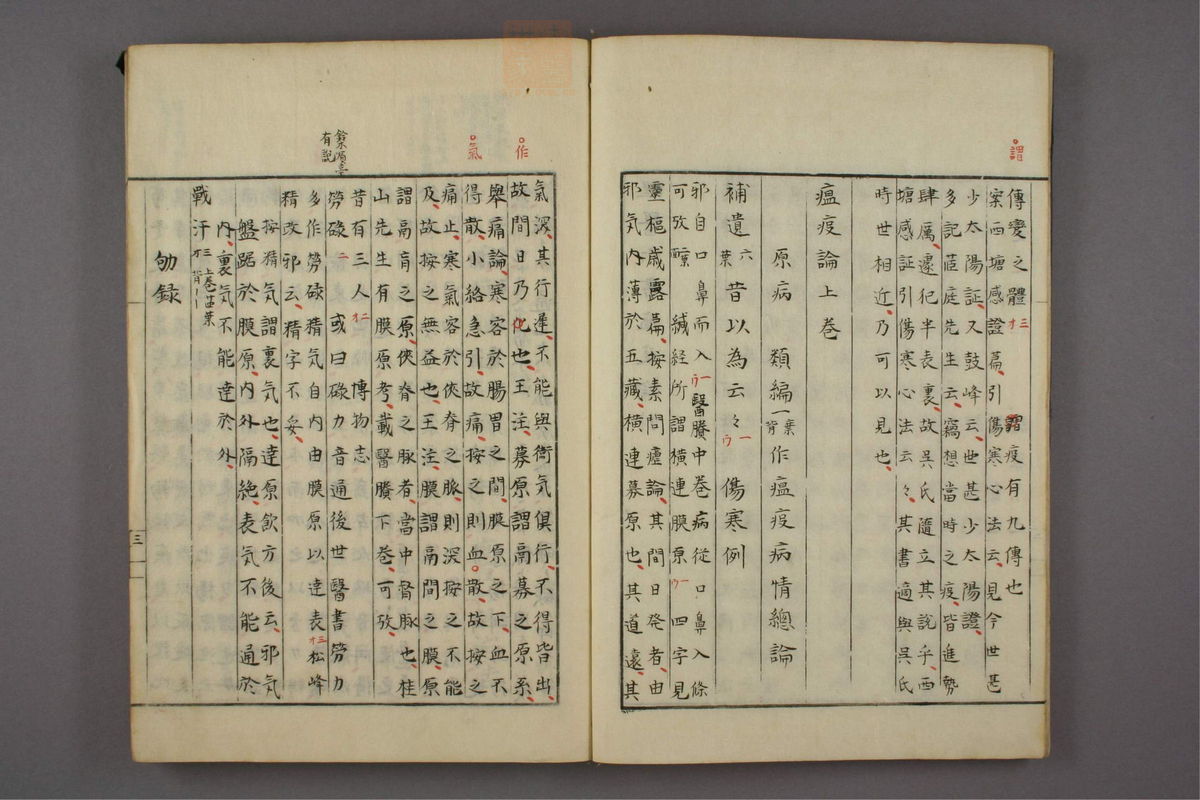 謂
傳變之體三オ 謂疫有九傳也
案西塘感證篇引傷寒心法云見今世甚
少太陽証又鼓峰云世甚少太陽證
多記茝庭先生云竊想當時之疫皆進勢
肆厲遽犯半表裏故吴氏隨立其說乎西
塘感証引傷寒心法云々其書適與吴氏
時世相近乃可以見也
瘟疫論上巻
原病 類編一葉背作瘟疫病情總論
補遺六葉昔以為云々一ウ傷寒例
邪自口鼻而入一ウ醫賸中巻病從口鼻入條
可攷 緘経所謂横連膜原一ウ四字見
靈樞歳露篇按素問瘧論其間日発者由
邪気内薄於五藏横連募原也其道遠其
作
氣
有説
氣深其行遲不能與衛気俱行不得皆出
故間日乃作也王注募原謂鬲募之原系
舉痛論寒客於腸胃之間膜原之下血不
得散小絡急引故痛按之則血氣散故按之
痛止寒氣客於俠脊之脈則深按之不能
及故按之無益也王注膜謂鬲間之膜原
謂鬲肓之原俠脊之脉者當中督脉也桂
山先生有膜原考載醫賸下巻可攷
昔有三人二オ博物志
勞碌二 或曰碌力音通後世醫書勞力
多作勞碌精気自内由膜原以達表三オ松峰
精改邪云精字不妥
按精気謂裏気也達原飲方後云邪気
盤踞於膜原内外隔絶表気不能通於
内裏気不能達於外
戰汗三オ上巻廿葉
劬録
三